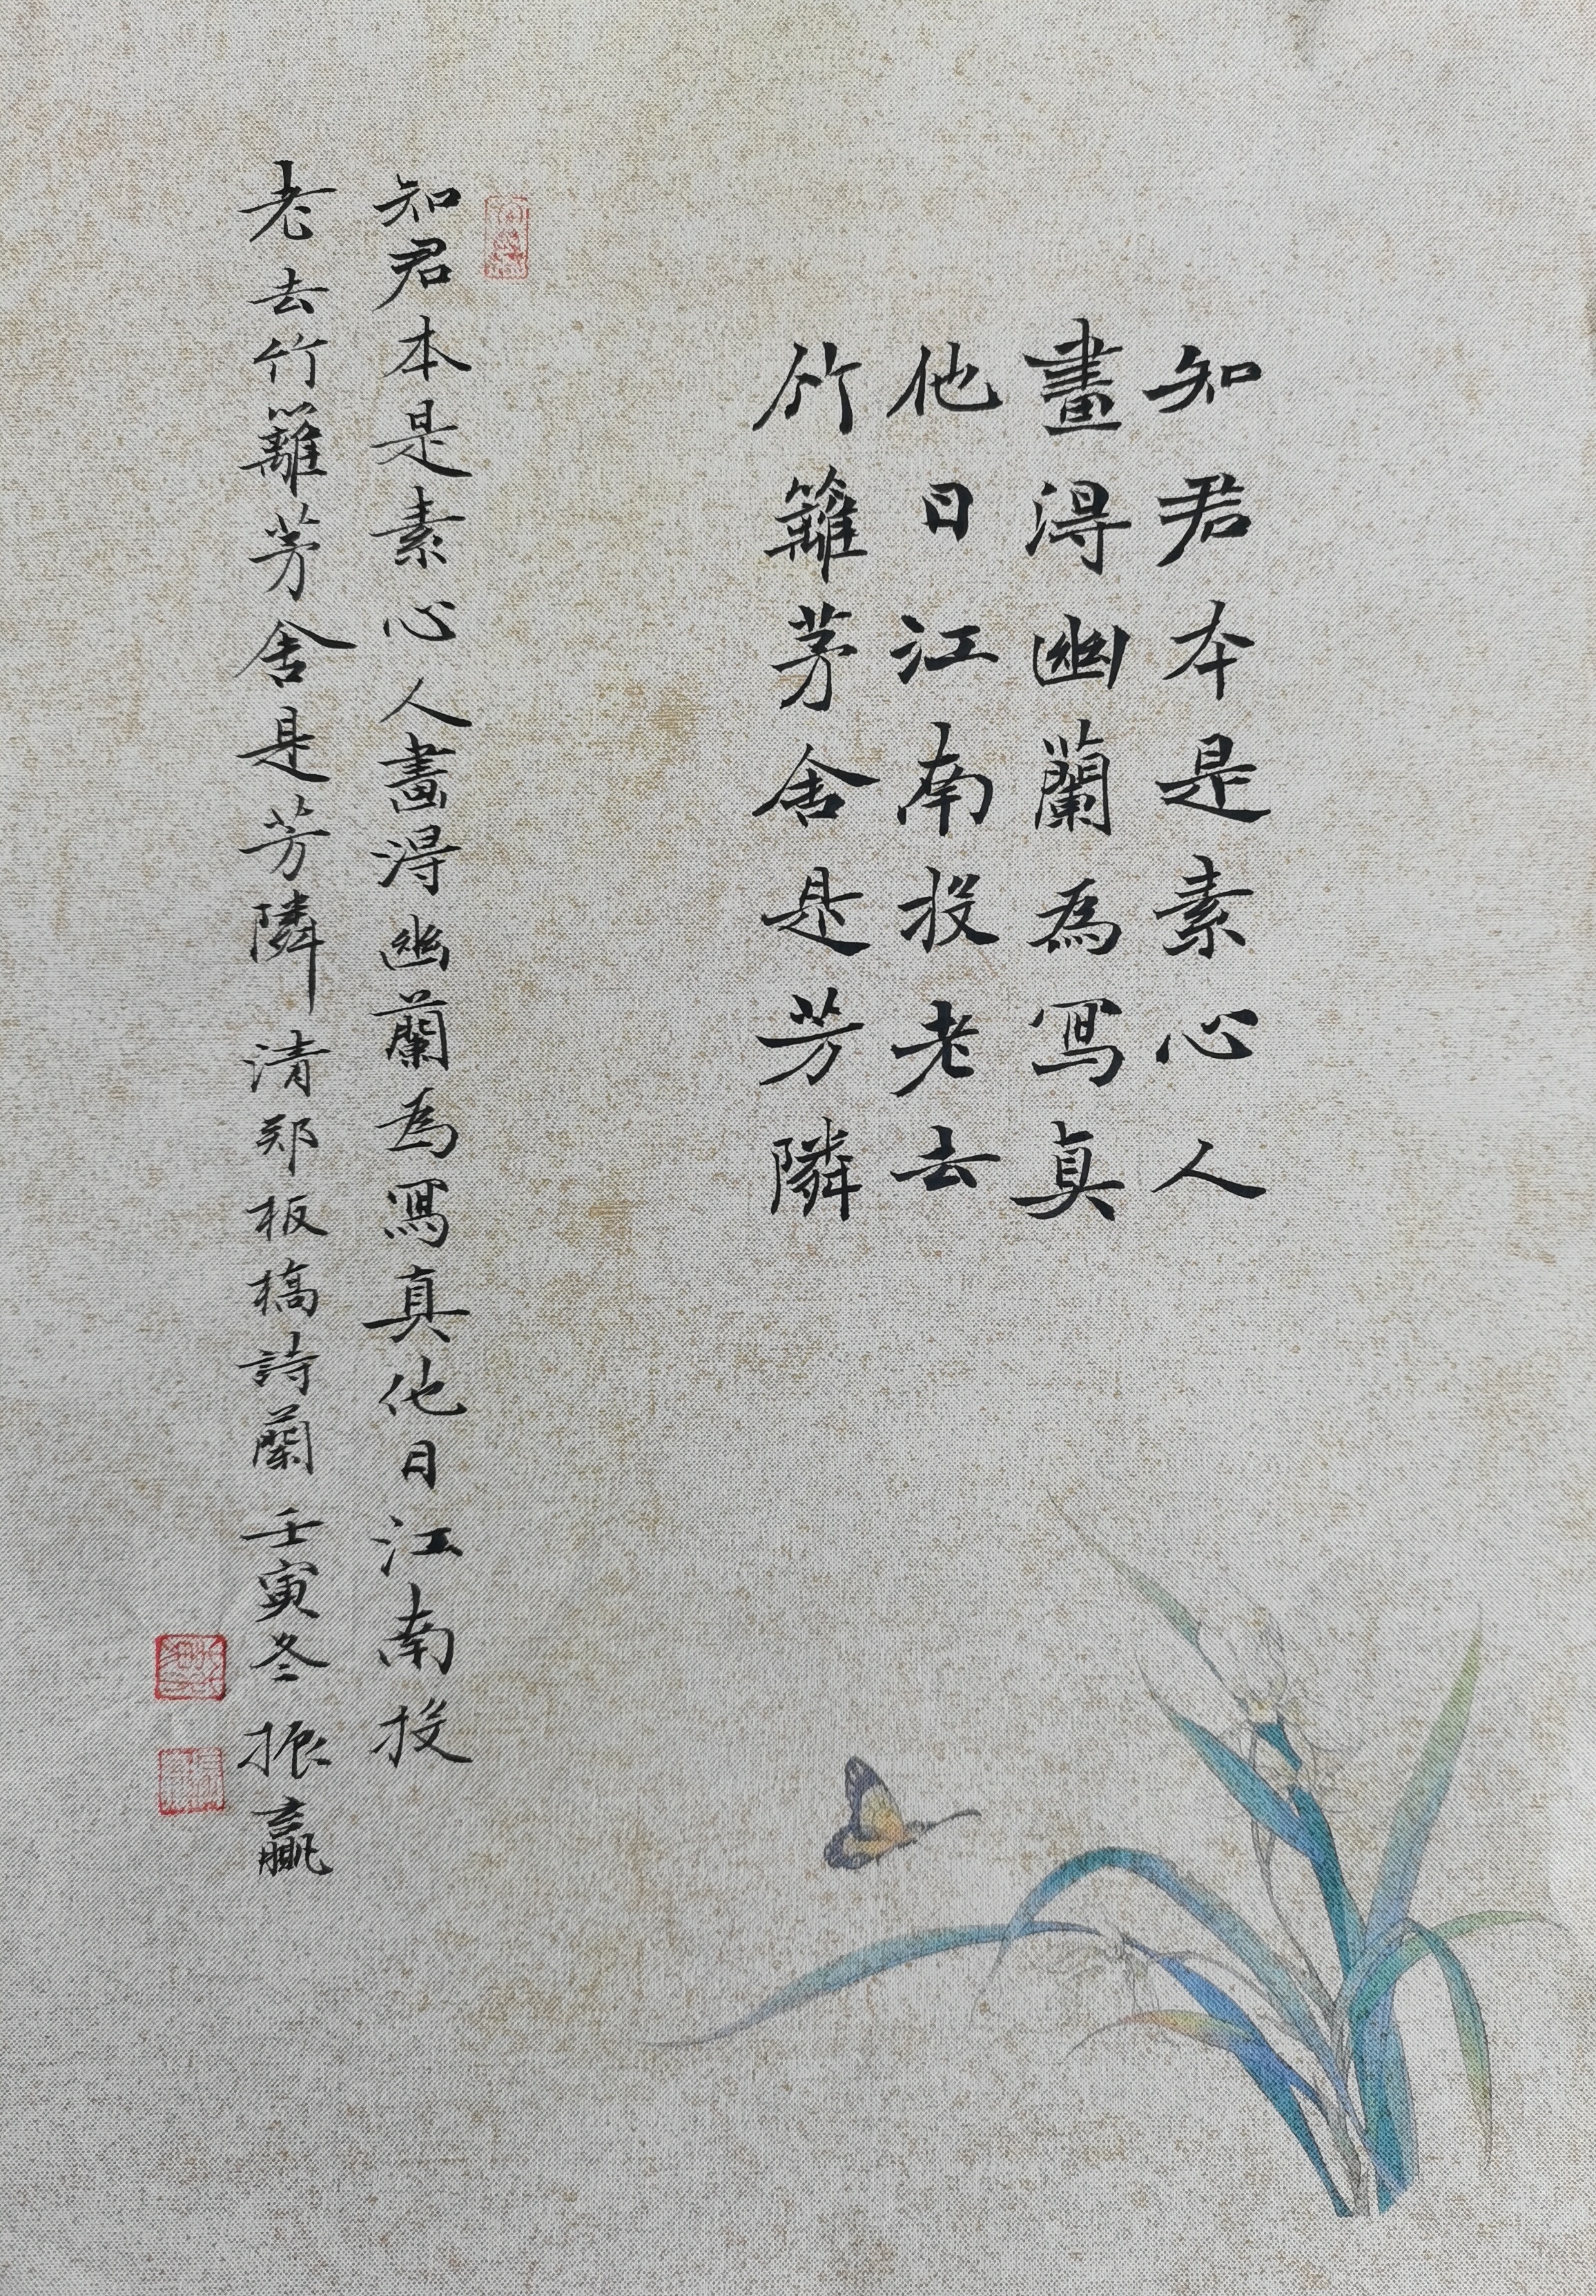 知君本是素心人
畫得幽蘭為寫真
他日江南投老去
竹籬茅舍是芳隣
知君本是素心人畫得幽蘭為寫真他日江南投
老去竹籬茅舍是芳隣 清郑板橋詩蘭 壬寅冬 振贏